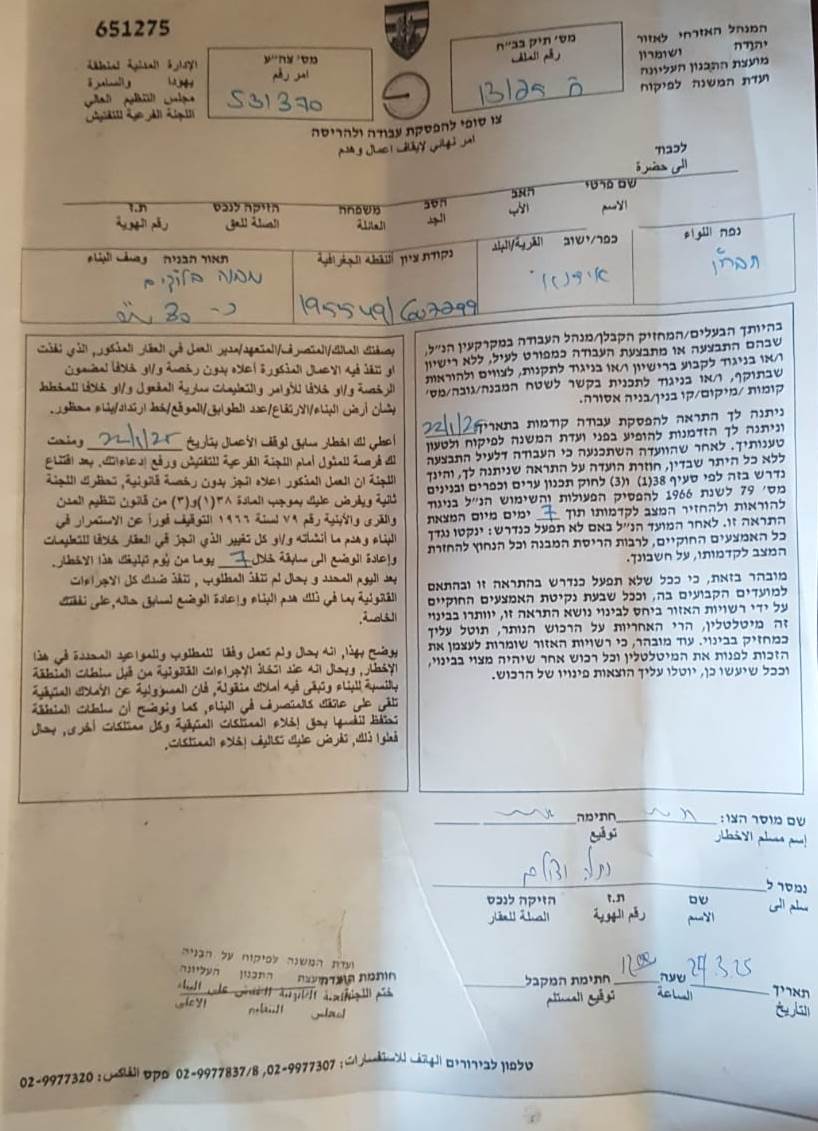 651275
המנהל האזרחי לאזור
יהודה ושומרון
מועצת התכנון העליונה
ועדת המשנה לפיקוח
מס׳ תיק בב״ח
رقم الملف
ח 13/25
מס׳ צה״ע
امر رقم
531370
الإدارة المدنية لمنطقة
يهودا والسامرة
مجلس التنظيم العالي
اللجنة الفرعية للتفتيش
צו סופי להפסקת עבודה ולהריסה
امر نهائي لايقاف اعمال وهدم
לכבוד
الى حضرة
שם פרטי האב הסב משפחה הזיקה לנכס ת.ז
الاسم الأب الجد العائلة الصلة للعق رقم الهوية
נפה اللواء
חברון
כפר/ישוב القرية/البلد
אידנא
נקודת ציון النقطه الجغرافية
תאור הבניה وصف البناء
מבנה בלוקים
בהיותך הבעלים/המחזיק הקבלן/מנהל העבודה במקרקעין הנ״ל,
שבהם התבצעה או מתבצעת העבודה כמפורט לעיל, ללא רישיון
ו/או בניגוד לקבוע ברישיון ו/או בניגוד לתקנות, לצווים ולהוראות
שבתוקף, ו/או בניגוד לתכנית בקשר לשטח המבנה/גובה/מס׳
קומות /מיקום/קו בנין/בניה אסורה.
ניתנה לך התראה להפסקת עבודה קודמת בתאריך 22/1/25
וניתנה לך הזדמנות להופיע בפני ועדת המשנה לפיקוח ולטעון
טענותיך. לאחר שהוועדה השתכנעה כי העבודה דלעיל התבצעה
ללא כל היתר שבדין, חוזרת הועדה על התראה שניתנה לך, והינך
נדרש בזה לפי סעיף 38(1) ו(3) לחוק תכנון ערים וכפרים ובנינים
מס׳ 79 לשנת 1966 להפסיק הפעולות והשימוש הנ״ל בניגוד
להוראות ולהחזיר המצב לקדמותו תוך 7 ימים מיום המצאת
התראה זו. לאחר המועד הנ״ל באם לא תפעל כנדרש: ינקטו נגדך
כל האמצעים החוקיים, לרבות הריסת המבנה וכל הנחוץ להחזרת
המצב לקדמותו, על חשבונך.
מובהר בזאת, כי ככל שלא תפעל כנדרש בהתראה זו ובהתאם
למועדים הקבועים בה, וככל שבעת נקיטת האמצעים החוקיים
על ידי רשויות האזור ביחס לבינוי נושא התראה זו, יוותרו בבינוי
זה מיטלטלין, הרי האחריות על הרכוש הנותר, תוטל עליך
כמחזיק בבינוי. עוד מובהר, כי רשויות האזור שומרות לעצמן את
הזכות לפנות את המיטלטלין וכל רכוש אחר שיהיה מצוי בבינוי,
וככל שיעשו כן, יוטלו עליך הוצאות פינויו של הרכוש.
بصفتك المالك/المتصرف/المتعهد/مدير العمل في العقار المذكور, الذي نفذت
او تنفذ فيه الاعمال المذكورة أعلاه بدون رخصة و/او خلافا لمضمون
الرخصة و/او خلافا للأوامر والتعليمات سارية المفعول و/او خلافا للمخطط
بشأن أرض البناء/الارتفاع/عدد الطوابق/الموقع/خط ارتداد/بناء محظور.
أعطي لك اخطار سابق لوقف الأعمال بتأريخ 22/1/25 ومنحت
لك فرصة للمثول أمام اللجنة الفرعية للتفتيش ورفع إدعاءاتك. بعد اقتناع
اللجنة ان العمل المذكور اعلاه انجز بدون رخصة قانونية, تحظرك اللجنة
ثانية ويفرض عليك بموجب المادة ٣٨(١)و(٣) من قانون تنظيم المدن
والقرى والأبنية رقم ٧٩ لسنة ١٩٦٦ التوقيف فوراً عن الاستمرار في
البناء وهدم ما أنشأته و/او كل تغيير الذي انجز في العقار خلافا للتعليمات
وإعادة الوضع الى سابقة خلال 7 يوما من يوم تبليغك هذا الاخطار.
بعد اليوم المحدد و بحال لم تنفذ المطلوب, تنفذ ضدك كل الاجراءات
القانونية بما في ذلك هدم البناء وإعادة الوضع لسابق حاله, على نفقتك
الخاصة.
يوضح بهذا, انه بحال ولم تعمل وفقا للمطلوب وللمواعيد المحددة في هذا
الإخطار, وبحال انه عند اتخاذ الإجراءات القانونية من قبل سلطات المنطقة
بالنسبة للبناء وتبقى فيه أملاك منقولة, فان المسؤولية عن الأملاك المتبقية
تلقى على عاتقك كالمتصرف في البناء, كما ونوضح أن سلطات المنطقة
تحتفظ لنفسها بحق إخلاء الممتلكات المتبقية وكل ممتلكات أخرى, بحال
فعلوا ذلك, تفرض عليك تكاليف إخلاء الممتلكات.
שם מוסר הצו: חתימה
إسم مسلم الاخطار توقيع
נמסר ל
سلم الى
שם ת.ז הזיקה לנכס
الاسم رقم الهوية الصلة للعقار
תאריך 24.3.25 שעה 12:00 חתימת המקבל
التأريخ الساعة توقيع المستلم
חותמת הועדה
ختم اللجنة
ועדת המשנה לפיקוח על הבניה
מועצת התכנון העליונה
لمجلس التنظيم الأعلى
טלפון לבירורים الهاتف للاستفسارات: 02-9977307, 02-9977837/8 פקס الفاكس: 02-9977320